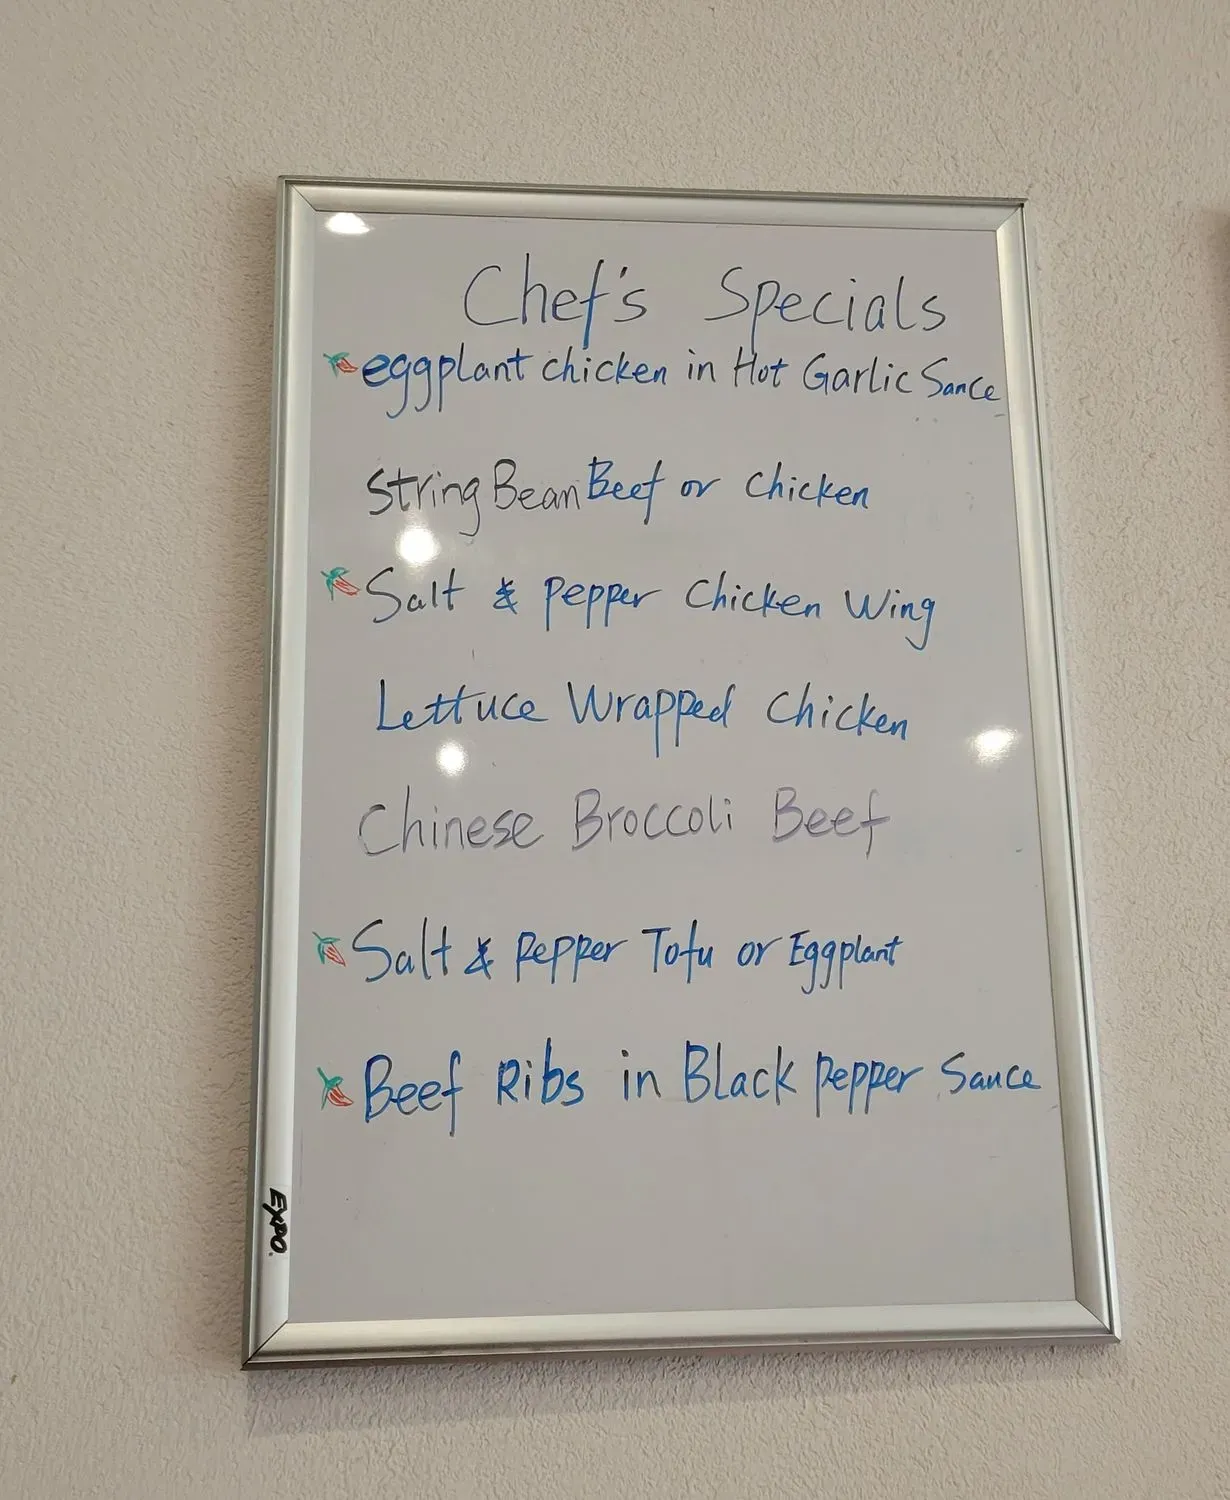 Chef's Specials
eggplant chicken in Hot Garlic Sance
String Bean Beef or Chicken
Salt & Pepper Chicken Wing
Lettuce Wrapped Chicken
Chinese Broccoli Beef
Salt & Pepper Tofu or Eggplant
Beef Ribs in Black Pepper Sauce
EXPO.